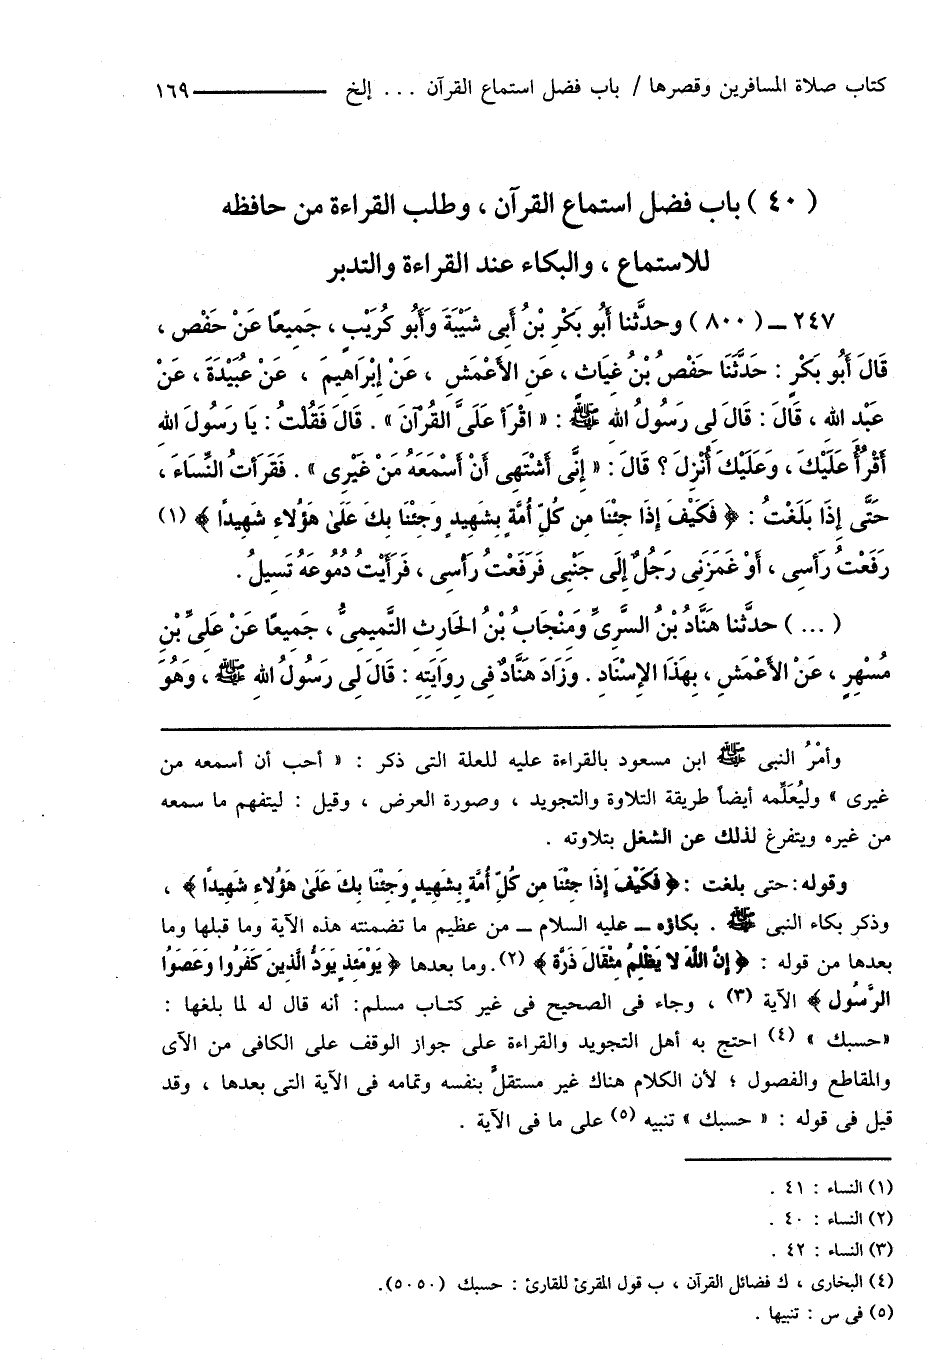 كتاب صلاة المسافرين وقصرها / باب فضل استماع القرآن ... إلخ ــــــــــــــ ١٦٩
( ٤٠ ) باب فضل استماع القرآن ، وطلب القراءة من حافظه
للاستماع ، والبكاء عند القراءة والتدبر
٢٤٧ ــ ( ٨٠٠ ) وحدثَّنا أَبُو بَكْرِ بْنُ أَبِى شَيْبَةَ وَأَبُو كُرَيْبٍ ، جَمِيعًا عَنْ حَفْصٍ ،
قَالَ أَبُو بَكْرٍ : حَدَّثَنَا حَفْصُ بْنُ غِيَاثٍ ، عَنِ الأَعْمَشِ ، عَنْ إِبْرَاهِيمَ ، عَنْ عُبَيْدَةَ ، عَنْ
عَبْدِ اللهِ ، قَالَ : قَالَ لِى رَسُولُ اللهِ ﷺ : « اقْرَأْ عَلَىَّ القُرْآنَ » . قَالَ فَقُلْتُ : يَا رَسُولَ اللهِ
أَقْرَأُ عَلَيْكَ ، وَعَلَيْكَ أُنْزِلَ ؟ قَالَ : « إِنِّى أَشْتَهِى أَنْ أَسْمَعَهُ مِنْ غَيْرِى » . فَقَرَأتُ النِّسَاءَ ،
حَتَّى إِذَا بَلَغْتُ : ﴿ فَكَيْفَ إِذَا جِئْنَا مِن كُلِّ أُمَّةٍ بِشَهِيدٍ وَجِئْنَا بِكَ عَلَىٰ هَؤُلاءِ شَهِيدًا ﴾ (١)
رَفَعْتُ رَأسِى ، أَوْ غَمَزَنِى رَجُلٌ إِلَى جَنْبِى فَرَفَعْتُ رَأسِى ، فَرَأَيْتُ دُمُوعَهُ تَسِيلُ .
( ... ) حدثَّنا هَنَّادُ بْنُ السَّرِىِّ وَمِنْجَابُ بْنُ الحَارِثِ التَّمِيمِىُّ ، جَمِيعًا عَنْ عَلِىِّ بْنِ
مُسْهِرٍ ، عَنْ الأَعْمَشِ ، بِهَذَا الإِسْنَادِ . وَزَادَ هَنَّادٌ فِى رِوَايَتِهِ : قَالَ لِى رَسُولُ اللهِ ﷺ ، وَهُوَ
وأمْرُ النبى ﷺ ابن مسعود بالقراءة عليه للعلة التى ذكر : « أحب أن أسمعه من
غيرى » وليُعَلِّمه أيضاً طريقة التلاوة والتجويد ، وصورة العرض ، وقيل : ليتفهم ما سمعه
من غيره ويتفرغ لذلك عن الشغل بتلاوته .
وقوله: حتى بلغت : ﴿ فَكَيْفَ إِذَا جِئْنَا مِن كُلِّ أُمَّةٍ بِشَهِيدٍ وَجِئْنَا بِكَ عَلَىٰ هَؤُلاءِ شَهِيدًا ﴾ ،
وذكر بكاء النبى ﷺ . بكاؤه ــ عليه السلام ــ من عظيم ما تضمنته هذه الآية وما قبلها وما
بعدها من قوله : ﴿ إِنَّ اللَّهَ لا يَظْلِمُ مِثْقَالَ ذَرَّةٍ ﴾ (٢). وما بعدها ﴿ يَوْمَئِذٍ يَوَدُّ الَّذِينَ كَفَرُوا وَعَصَوُا
الرَّسُولَ ﴾ الآية (٣) ، وجاء فى الصحيح فى غير كتاب مسلم: أنه قال له لما بلغها :
«حسبك » (٤) احتج به أهل التجويد والقراءة على جواز الوقف على الكافى من الآى
والمقاطع والفصول ؛ لأن الكلام هناك غير مستقلٌ بنفسه وتمامه فى الآية التى بعدها ، وقد
قيل فى قوله : « حسبك » تنبيه (٥) على ما فى الآية .
(١) النساء : ٤١ .
(٢) النساء : ٤٠ .
(٣) النساء : ٤٢ .
(٤) البخارى ، ك فضائل القرآن ، ب قول المقرئ للقارئ : حسبك (٥٠٥٠).
(٥) فى س : تنبيها .